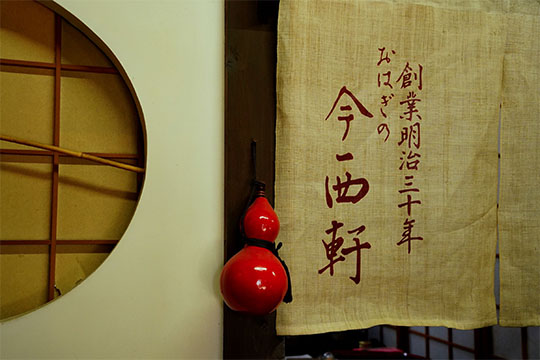 創業明治三十年
おはぎの
今西軒